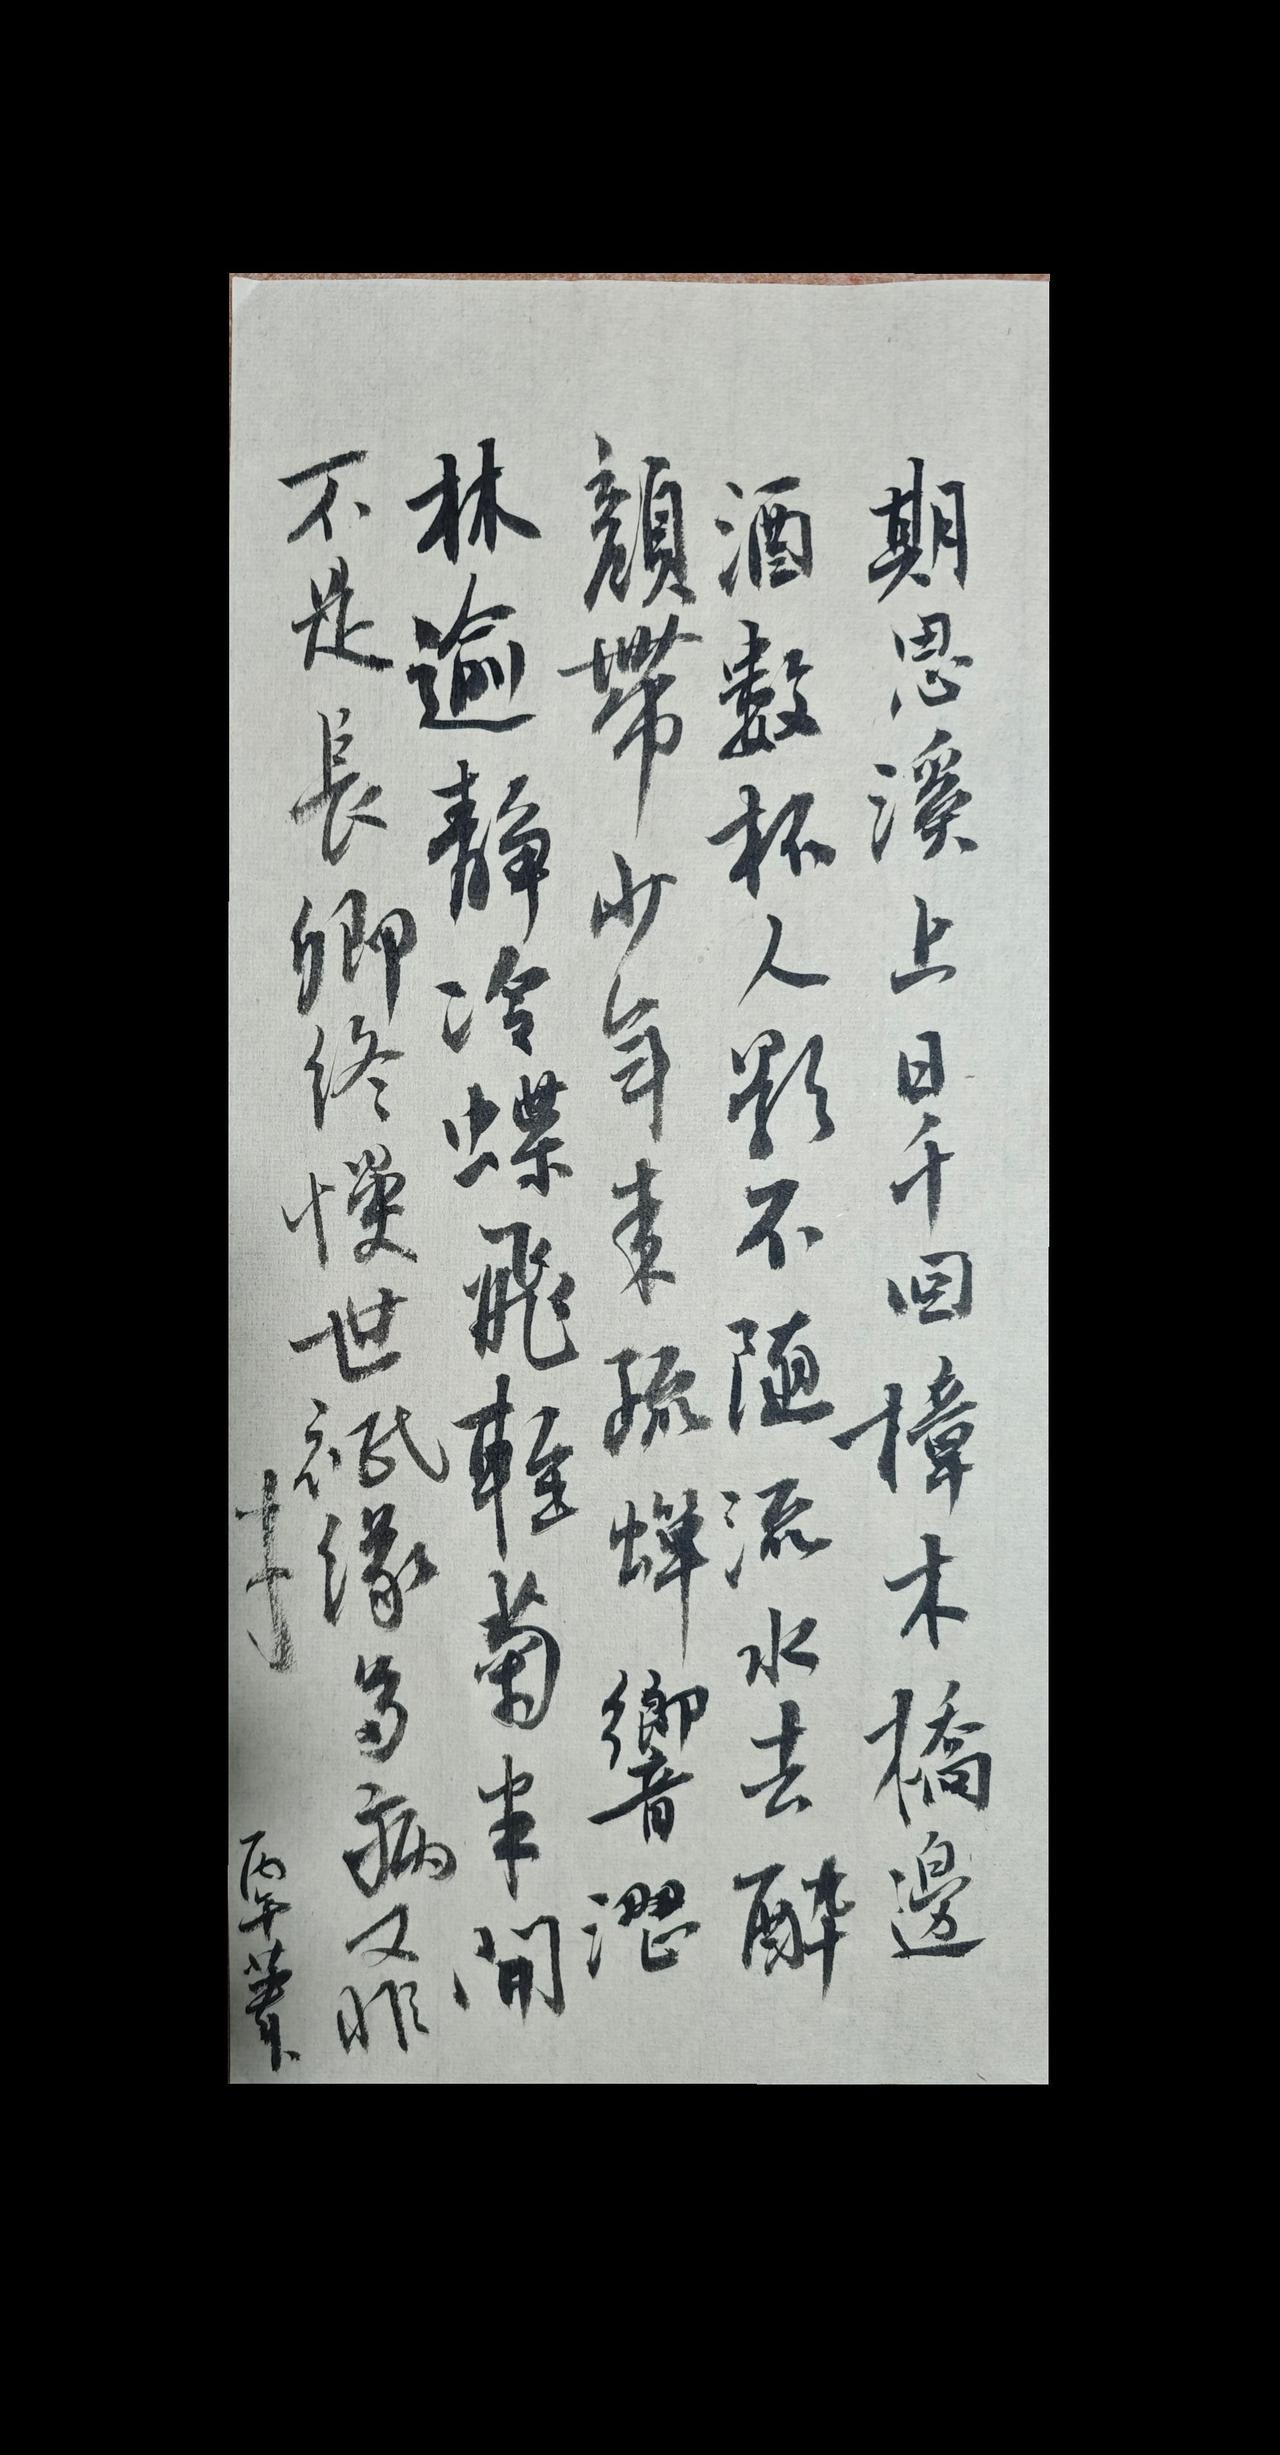 期思溪上日千回樟木橋邊
酒數杯人影不随流水去醉
顏帶少年来疏蟬響澀
林逾靜冷蝶飛輕菊半開
不是長卿終慢世祇緣多病又非
才
丙午